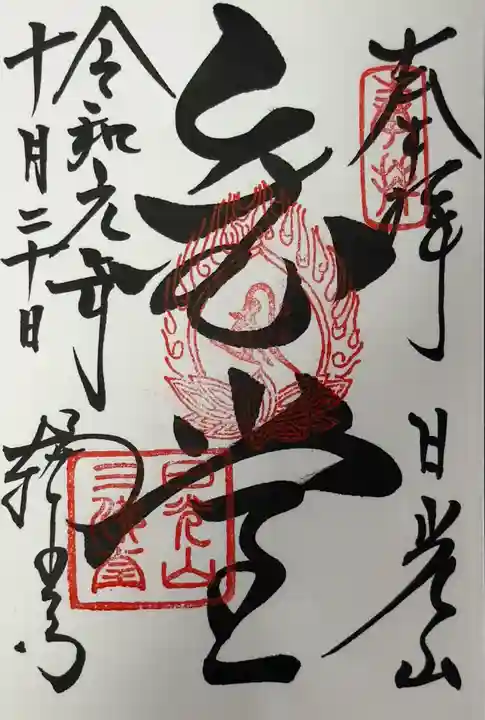 奉拝 日光山
金堂
令和元年
十月二十日 輪王寺
日光山
三佛堂